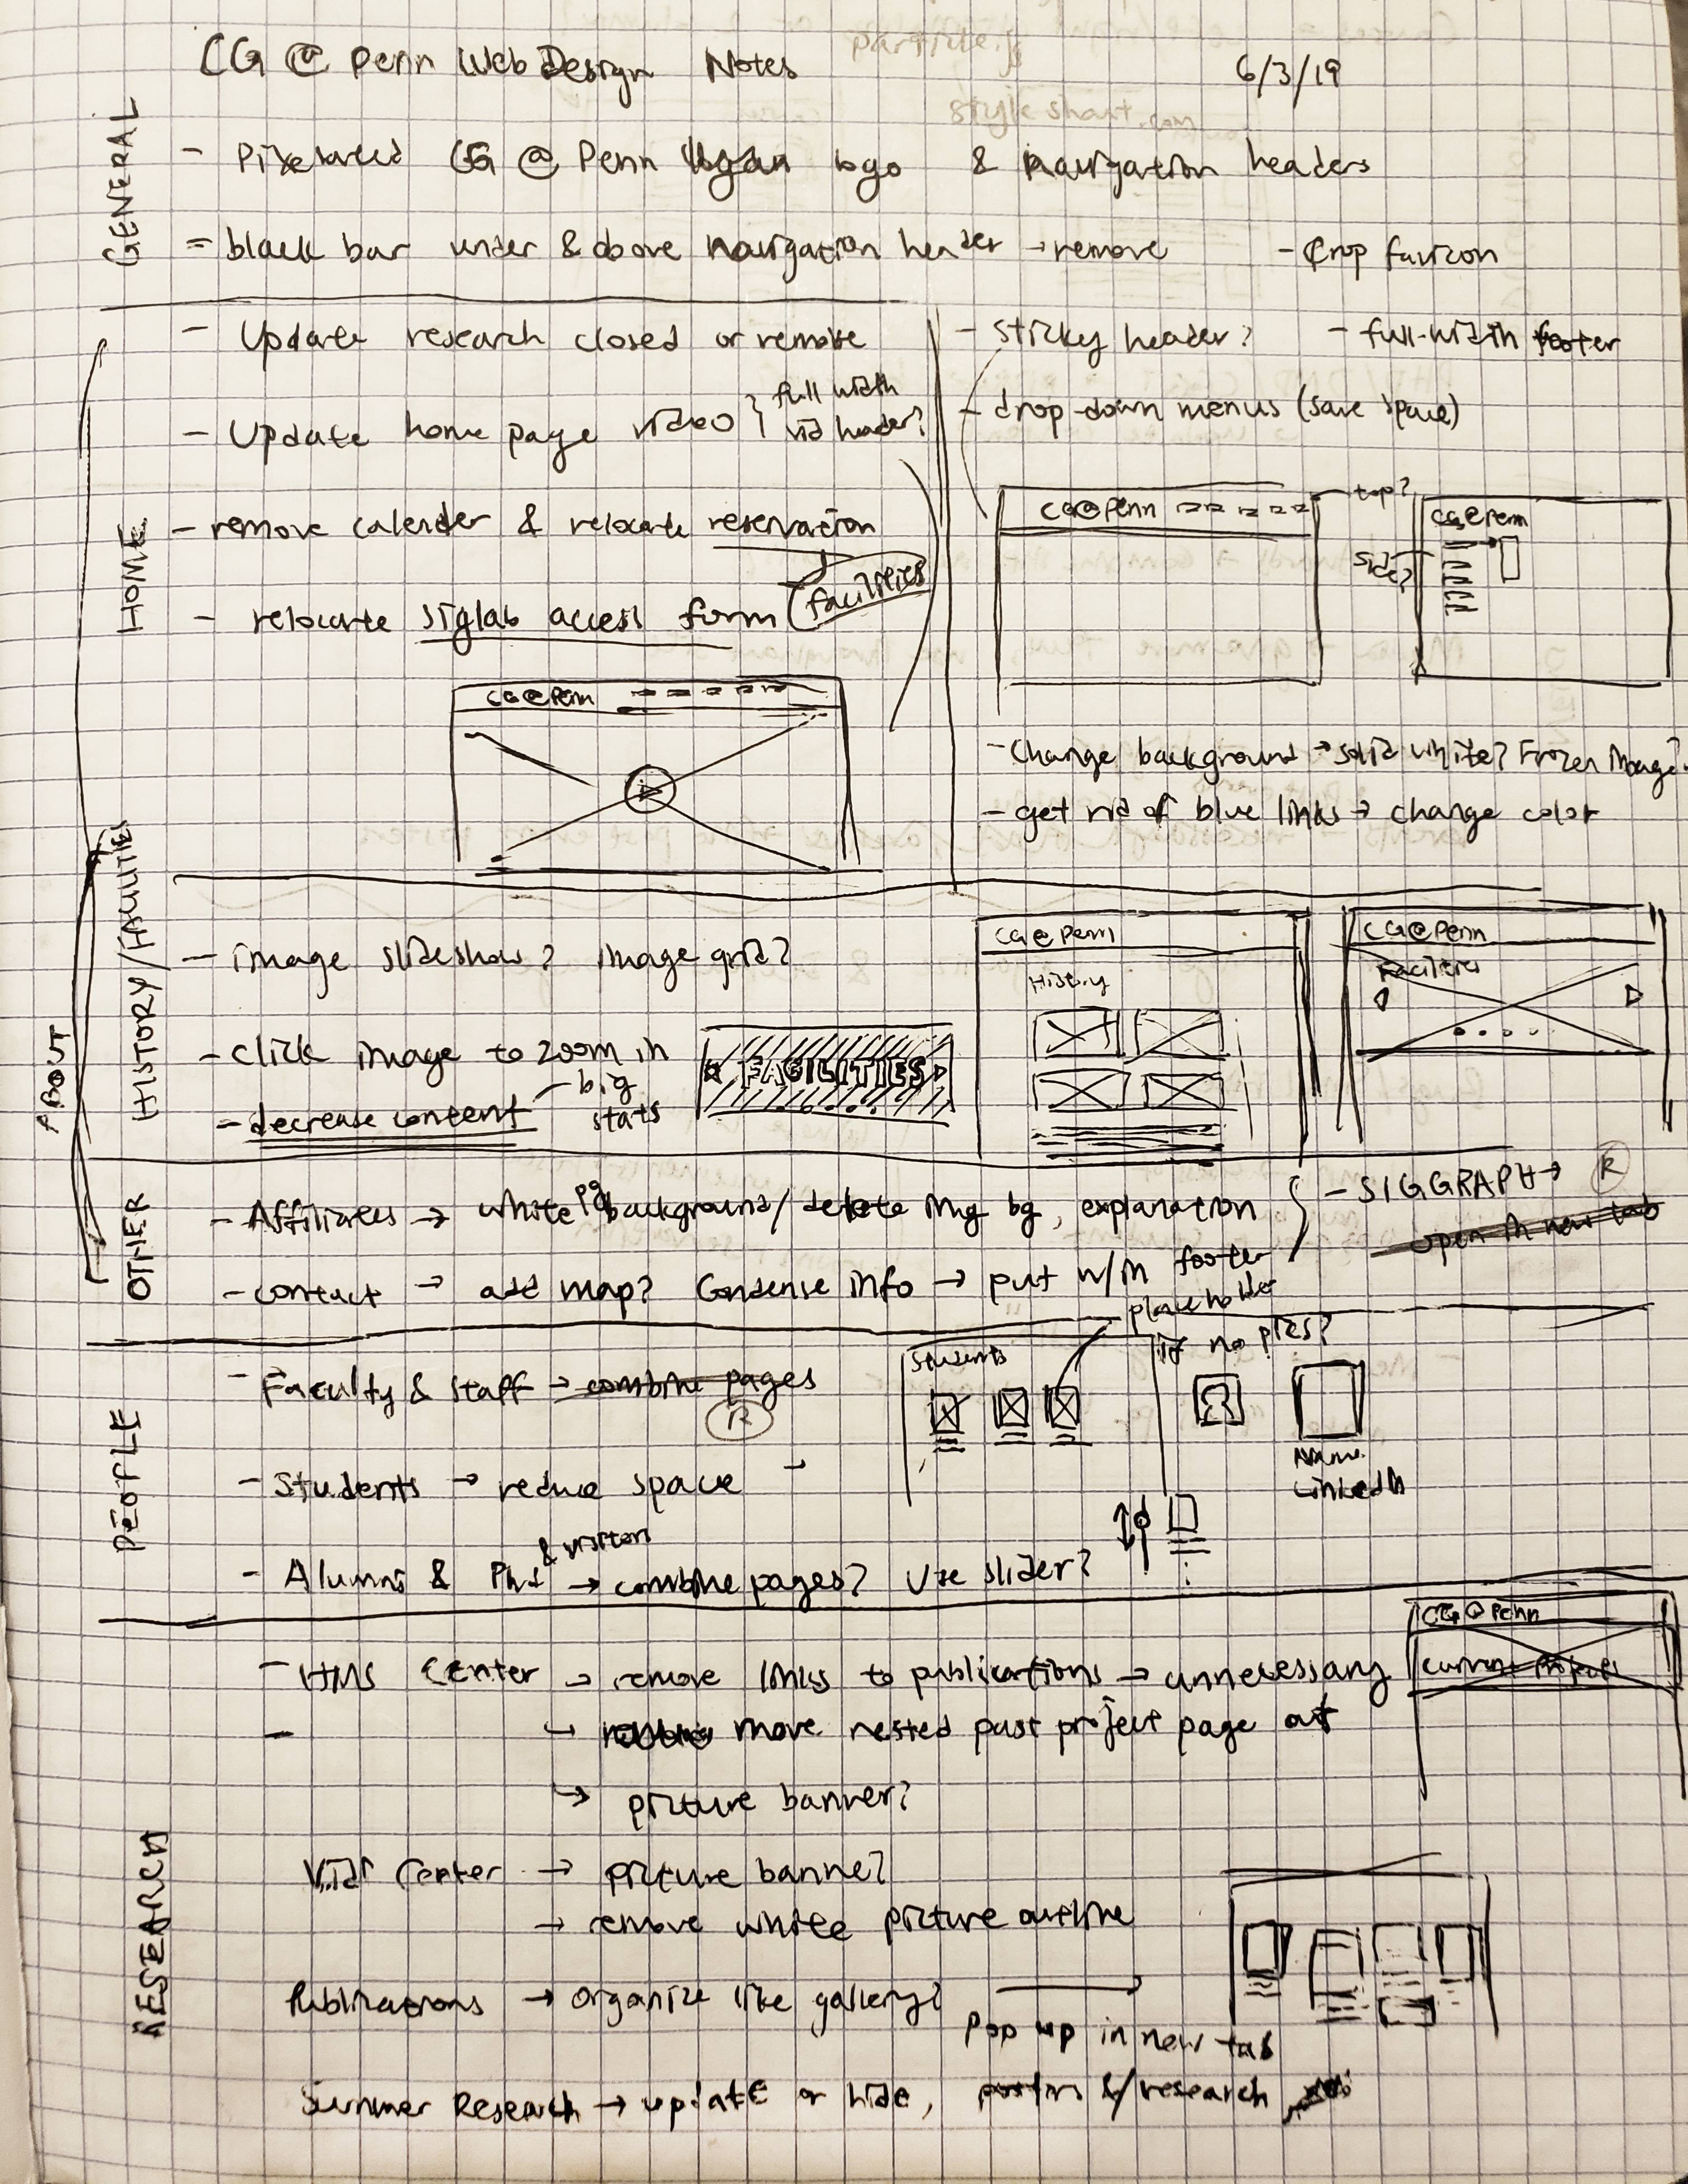 CG @ Penn Web Design Notes
6/3/19
particle.js
styleshout.com
GENERAL
- Pixelated CG @ Penn logo & navigation headers
- black bar under & above navigation header → remove
- Crop favicon
ABOUT
HOME
- Update research closed or remove
- Update home page video } full width
vid header?
- remove calender & relocate reservation
- relocate siglab access form (facilities
CG@Penn
- sticky header?
- full-width footer
- drop-down menus (save space)
CG@Penn
top?
side?
CG@Penn
- change background → solid white? Frozen image?
- get rid of blue links → change color
HISTORY/FACILITIES
- image slideshow? image grid?
- click image to zoom in
- decrease content - big
stats
FACILITIES
CG@Penn
History
CG@Penn
Facilities
OTHER
- Affiliates → white pg background/delete img bg, explanation
- SIGGRAPH → R
open in new tab
- contact → add map? Condense info → put w/in footer
PEOPLE
- Faculty & Staff → combine pages
R
- Students → reduce space →
- Alumni & PhD & visitors → combine pages? Use slider?
Students
placeholder
if no pics?
Name
LinkedIn
RESEARCH
- HMS Center → remove links to publications → unnecessary
- → move nested past project page out
→ picture banner?
CG@Penn
current projects
ViDi Center → picture banner?
→ remove white picture outline
Publications → organize like gallery?
pop up in new tab
Summer Research → update or hide, posters &/research